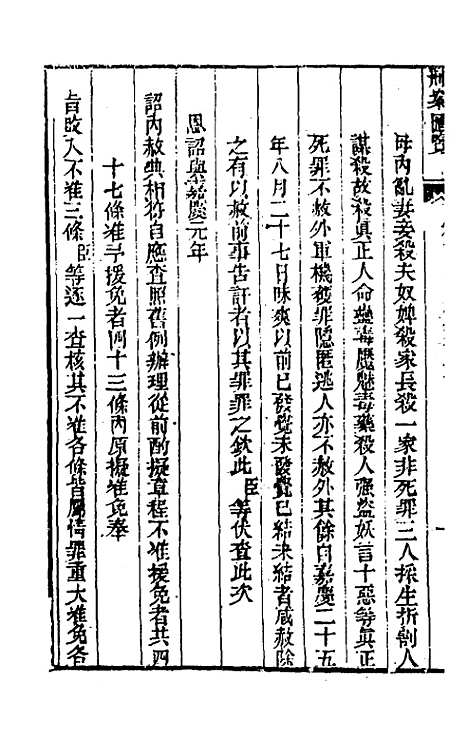 刑案匯覽
母內亂妻妾殺夫奴婢殺家長殺一家非死罪三人採生折割人
謀殺故殺真正人命蠱毒魘魅毒藥殺人强盜妖言十惡等真正
死罪不赦外軍機獲罪隱匿逃人亦不赦外其餘自嘉慶二十五
年八月二十七日昧爽以前已發覺未發覺已結未結者咸赦除
之有以赦前事告訐者以其罪罪之欽此 臣等伏查此次
恩詔與嘉慶元年
詔內赦典相符自應查照舊例辦理從前酌擬章程不准援免者共四
十七條准予援免者四十三條內原擬准免奉
旨改入不准三條 臣等逐一查核其不准各條皆屬情罪重大准免各